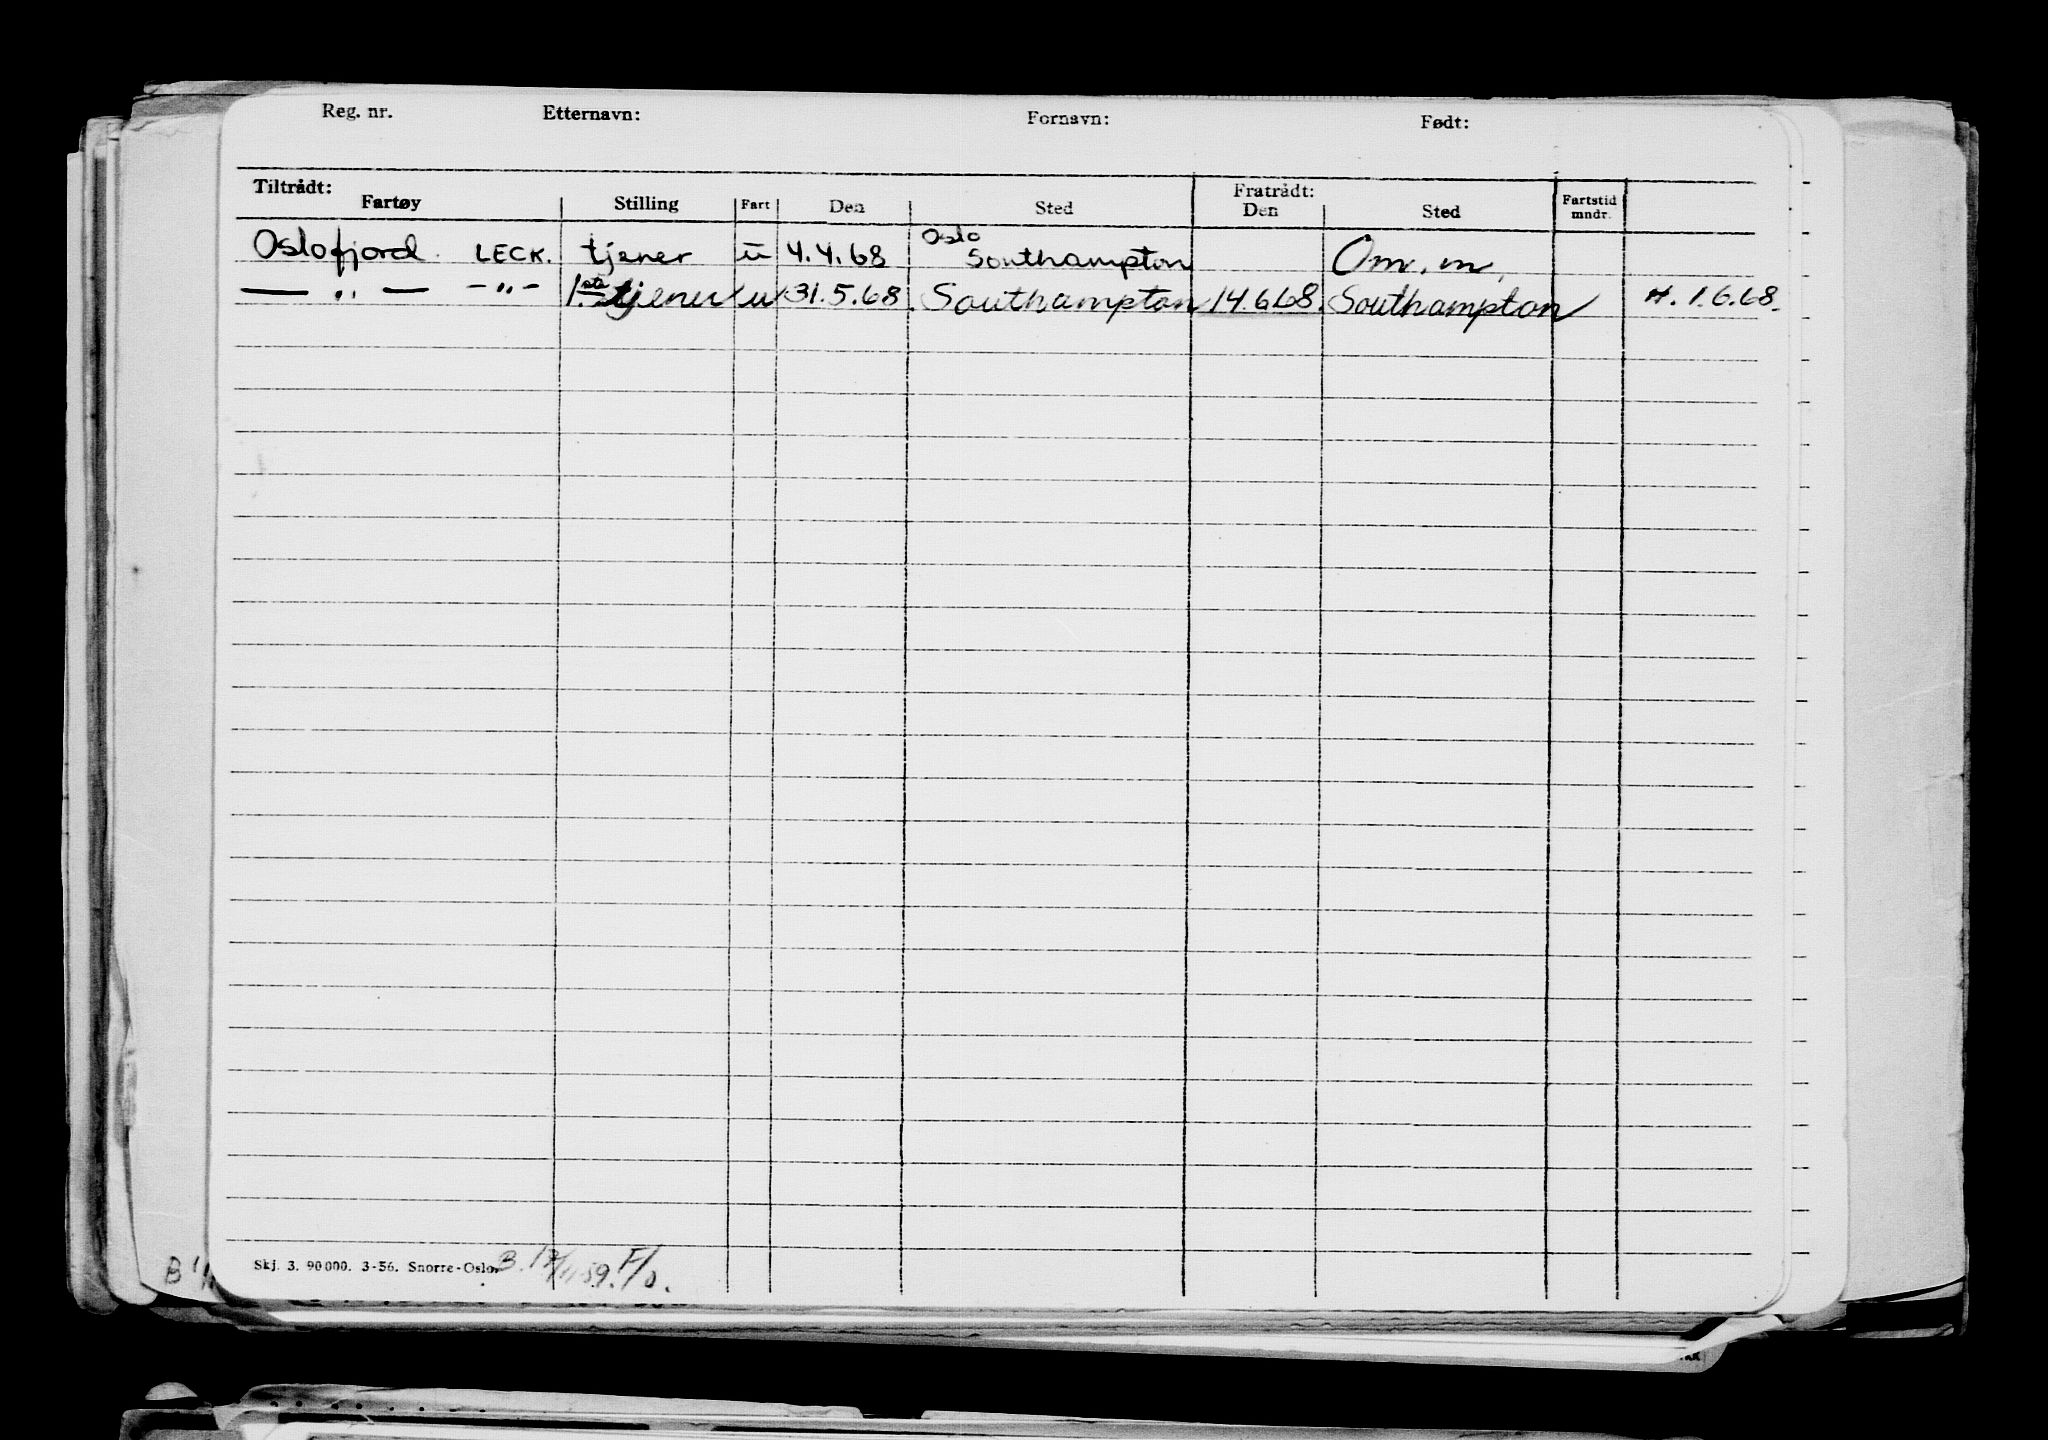 Reg. nr. Etternavn: Fornavn: Født:
Tiltrådt: Fratrådt:
Fartøy Stilling Fart Den Sted Den Sted Fartstid mndr.
Oslofjord LECK. tjener u 4.4.68 Oslo Southampton Om. m.
— " — - " - 1. tjener u 31.5.68 Southampton 14.6.68. Southampton H. 1.6.68.
Skj. 3. 90 000. 3-56. Snorre-Oslo.
B